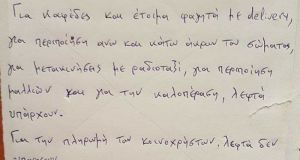 Για καφέδες και έτοιμα φαγητά με delivery,
για περιποίηση άνω και κάτω άκρων του σώματος,
για μετακινήσεις με ραδιοταξί, για περιποίηση
μαλλιών και για την καλοπέραση, λεφτά
υπάρχουν.
Για την πληρωμή των κοινοχρήστων, λεφτά δεν